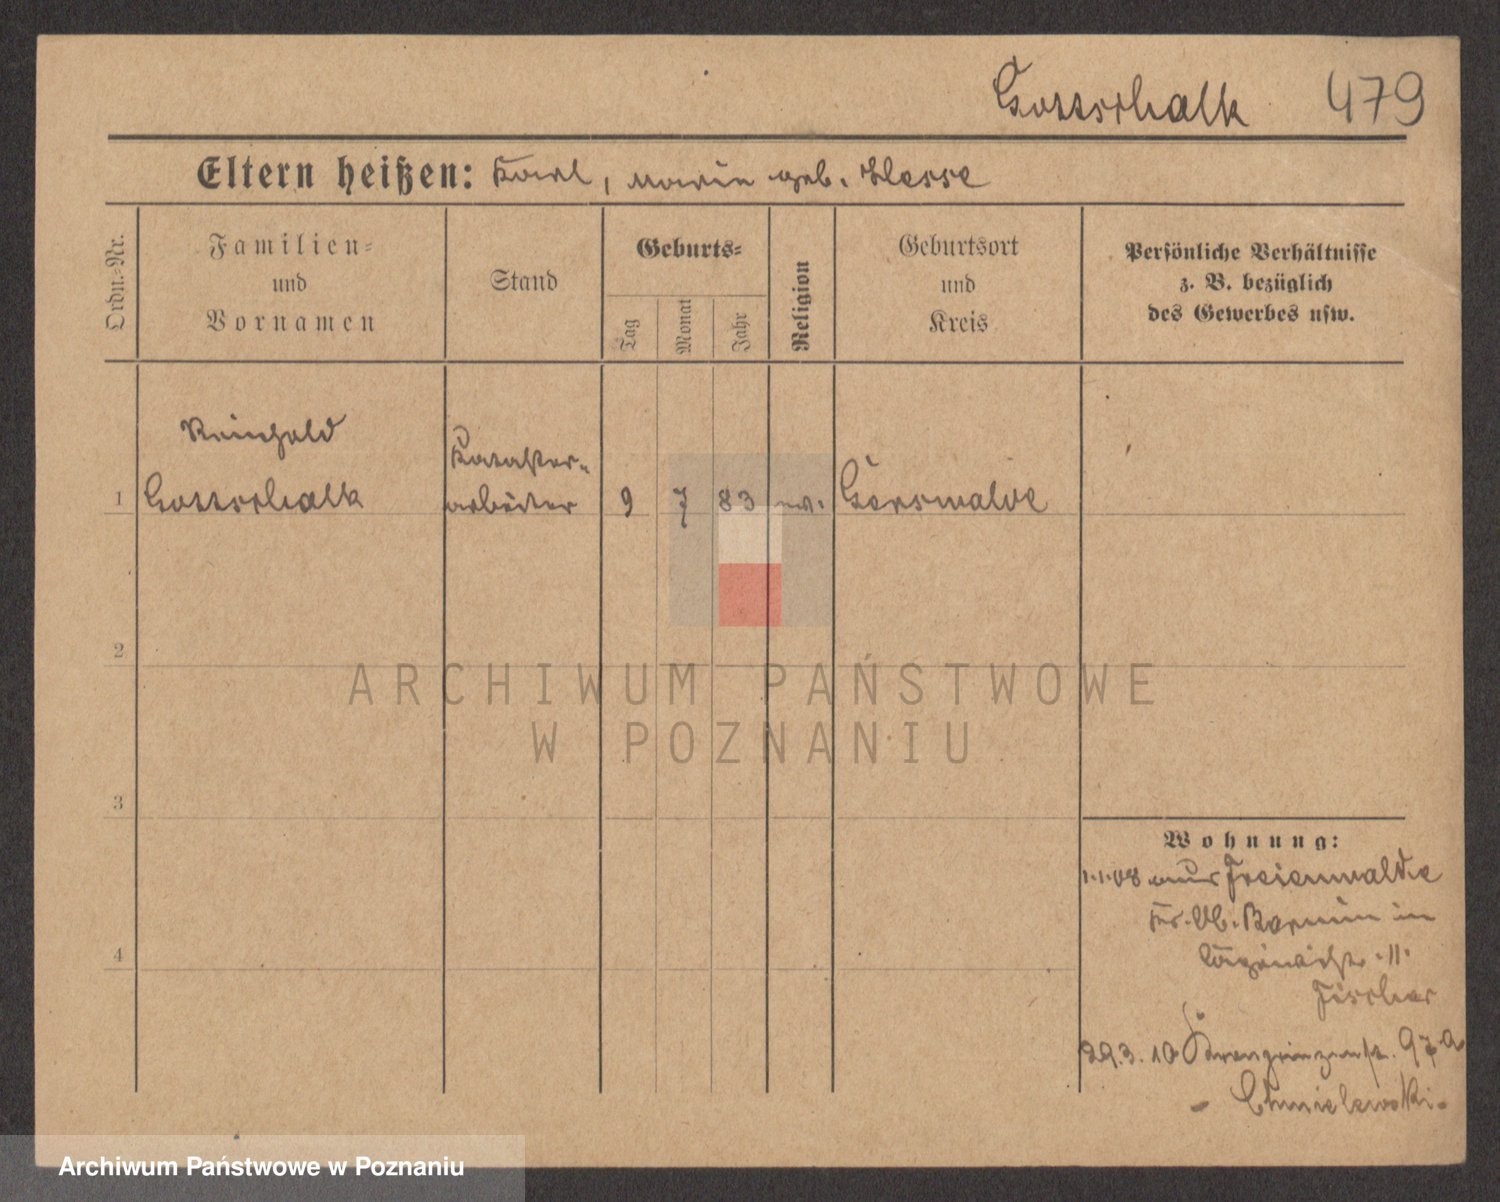 Gottschalk 479
Eltern heißen: Karl, Marie geb. Hesse
Ordn.-Nr.
Familien-
und
Vornamen
Stand
Geburts-
Tag
Monat
Jahr
Religion
Geburtsort
und
Kreis
Persönliche Verhältnisse
z. B. bezüglich
des Gewerbes usw.
Reinhold
Gottschalk
Kataster-
arbeiter
1 9 7 83 ev. Gerswalde
2
3
4
Wohnung:
1.1.08 aus Freienwalde
Kr. Ob. Barnim in
11.
Fischer
29.3.10 Kronprinzenstr. 97a
- Chmielewski.
ARCHIWUM PAŃSTWOWE
W POZNANIU
Archiwum Państwowe w Poznaniu